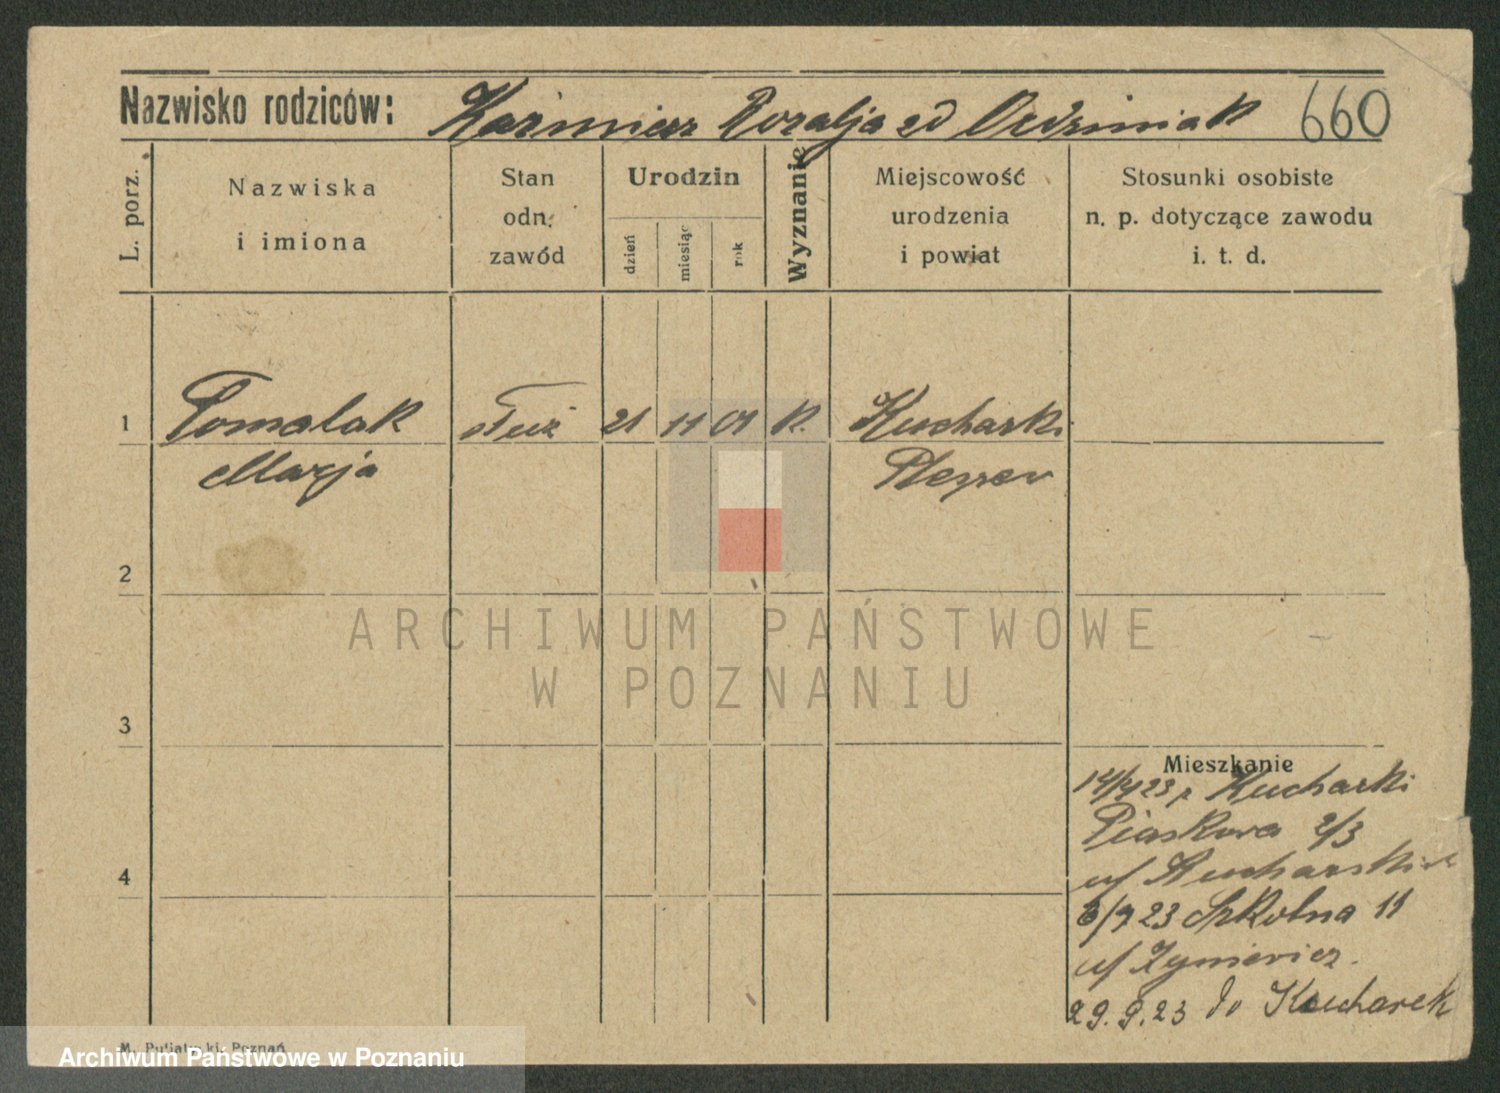 Nazwisko rodziców: Kaźmierz Rozalja zd 660
L. porz.
Nazwiska
i imiona
Stan
odn.
zawód
Urodzin
dzień
miesiąc
rok
Wyznanie
Miejscowość
urodzenia
i powiat
Stosunki osobiste
n. p. dotyczące zawodu
i. t. d.
1 Tomalak służ 21 11 01 K. Kucharki
Marja
2
ARCHIWUM PAŃSTWOWE
W POZNANIU
3
Mieszkanie
23 z Kucharki
Piaskowa 2/3
4
23 Szkolna 11
29. 9. 23 do Kucharek
M. Putiatycki, Poznań
Archiwum Państwowe w Poznaniu